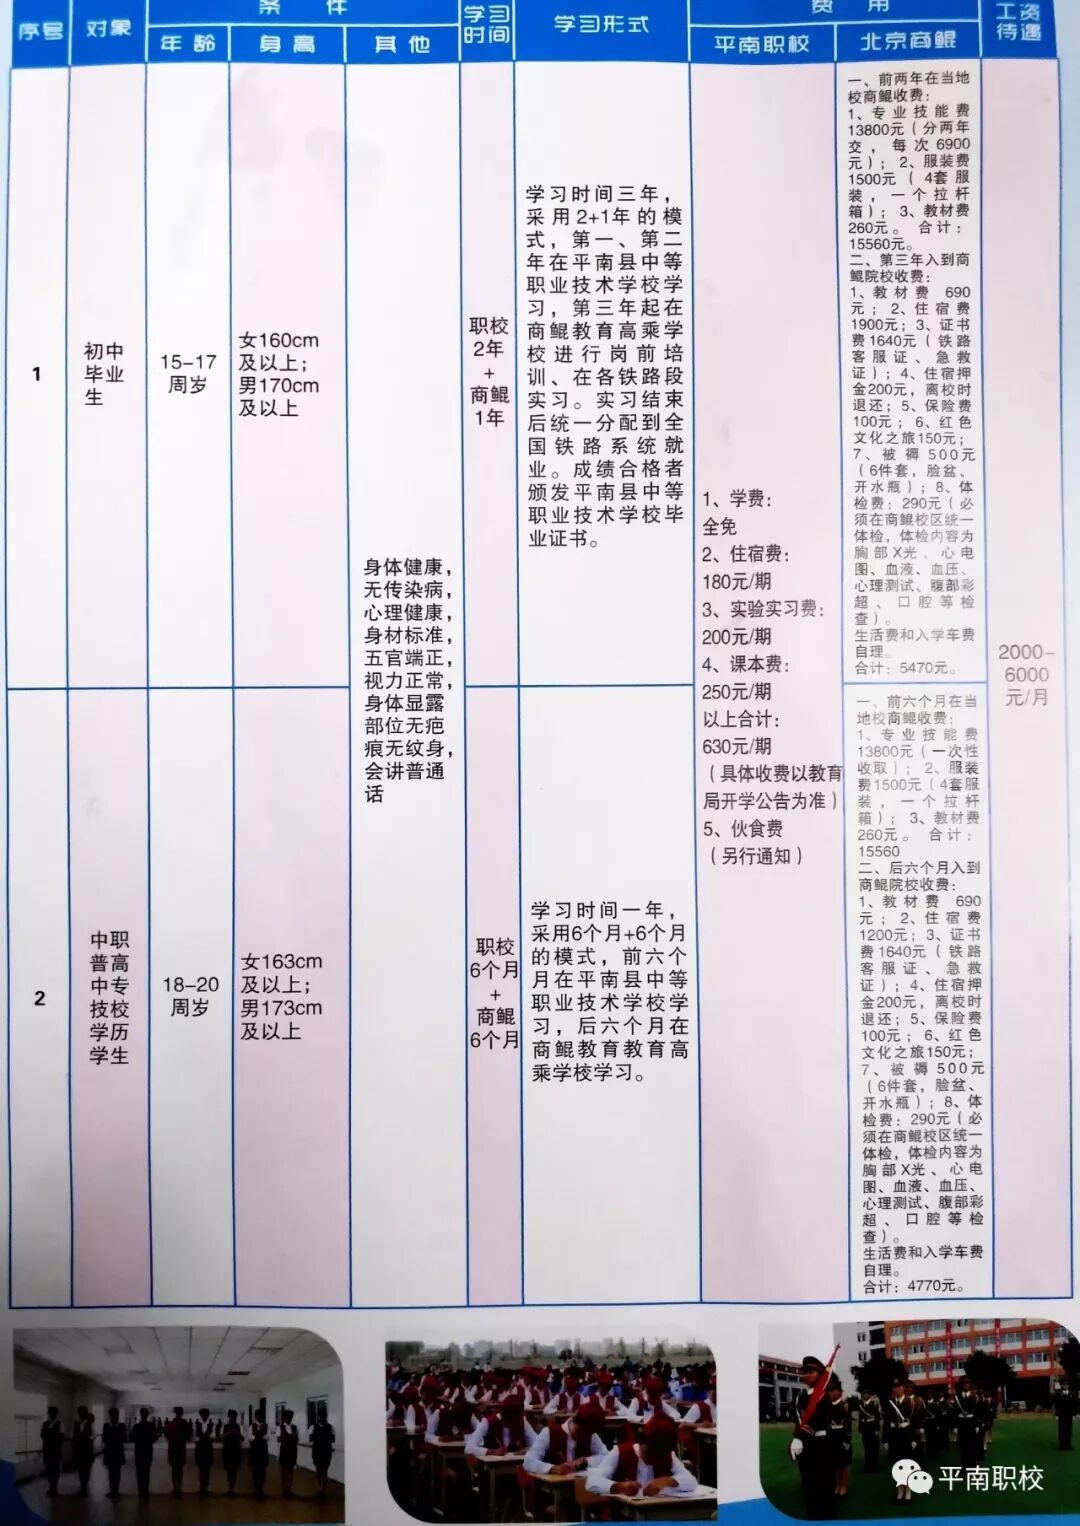 序号
对象
条件
年龄
身高
其他
学习
时间
学习形式
费用
平南职校
北京商鲲
工资
待遇
1
初中
毕业
生
15-17
周岁
女160cm
及以上；
男170cm
及以上
身体健康，
无传染病，
心理健康，
身材标准，
五官端正，
视力正常，
身体显露
部位无疤
痕无纹身，
会讲普通
话
职校
2年
+
商鲲
1年
学习时间三年，
采用2+1年的模
式，第一、第二
年在平南县中等
职业技术学校学
习，第三年起在
商鲲教育高乘学
校进行岗前培
训、在各铁路段
实习。实习结束
后统一分配到全
国铁路系统就
业。成绩合格者
颁发平南县中等
职业技术学校毕
业证书。
1、学费：
全免
2、住宿费：
180元/期
3、实验实习费：
200元/期
4、课本费：
250元/期
以上合计：
630元/期
（具体收费以教育
局开学公告为准）
5、伙食费
（另行通知）
一、前两年在当地
校商鲲收费：
1、专业技能费
13800元（分两年
交，每次6900
元）；2、服装费
1500元（4套服
装，一个拉杆
箱）；3、教材费
260元。合计：
15560元。
二、第三年入到商
鲲院校收费：
1、教材费 690
元；2、住宿费
1900元；3、证书
费1640元（铁路
客服证、急救
证）；4、住宿押
金200元，离校时
退还；5、保险费
100元；6、红色
文化之旅150元；
7、被褥500元
（6件套，脸盆、
开水瓶）；8、体
检费：290元（必
须在商鲲校区统一
体检，体检内容为
胸部X光、心电
图、血液、血压、
心理测试、腹部彩
超、口腔等检
查）。
生活费和入学车费
自理。
合计：5470元。
2000-
6000
元/月
2
中职
普高
中专
技校
学历
学生
18-20
周岁
女163cm
及以上；
男173cm
及以上
职校
6个月
+
商鲲
6个月
学习时间一年，
采用6个月+6个月
的模式，前六个
月在平南县中等
职业技术学校学
习，后六个月在
商鲲教育教育高
乘学校学习。
一、前六个月在当
地校商鲲收费：
1、专业技能费
13800元（一次性
收取）；2、服装
费1500元（4套服
装，一个拉杆
箱）；3、教材费
260元。合计：
15560
二、后六个月入到
商鲲院校收费：
1、教材费 690
元；2、住宿费
1200元；3、证书
费1640元（铁路
客服证、急救
证）；4、住宿押
金200元，离校时
退还；5、保险费
100元；6、红色
文化之旅150元；
7、被褥500元
（6件套，脸盆、
开水瓶）；8、体
检费：290元（必
须在商鲲校区统一
体检，体检内容为
胸部X光、心电
图、血液、血压、
心理测试、腹部彩
超、口腔等检
查）。
生活费和入学车费
自理。
合计：4770元。
平南职校